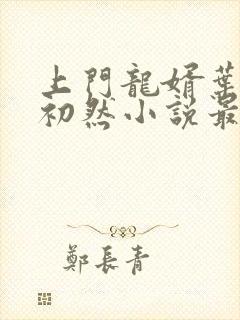 上門龍婿葉
初然小説最
鄭長青